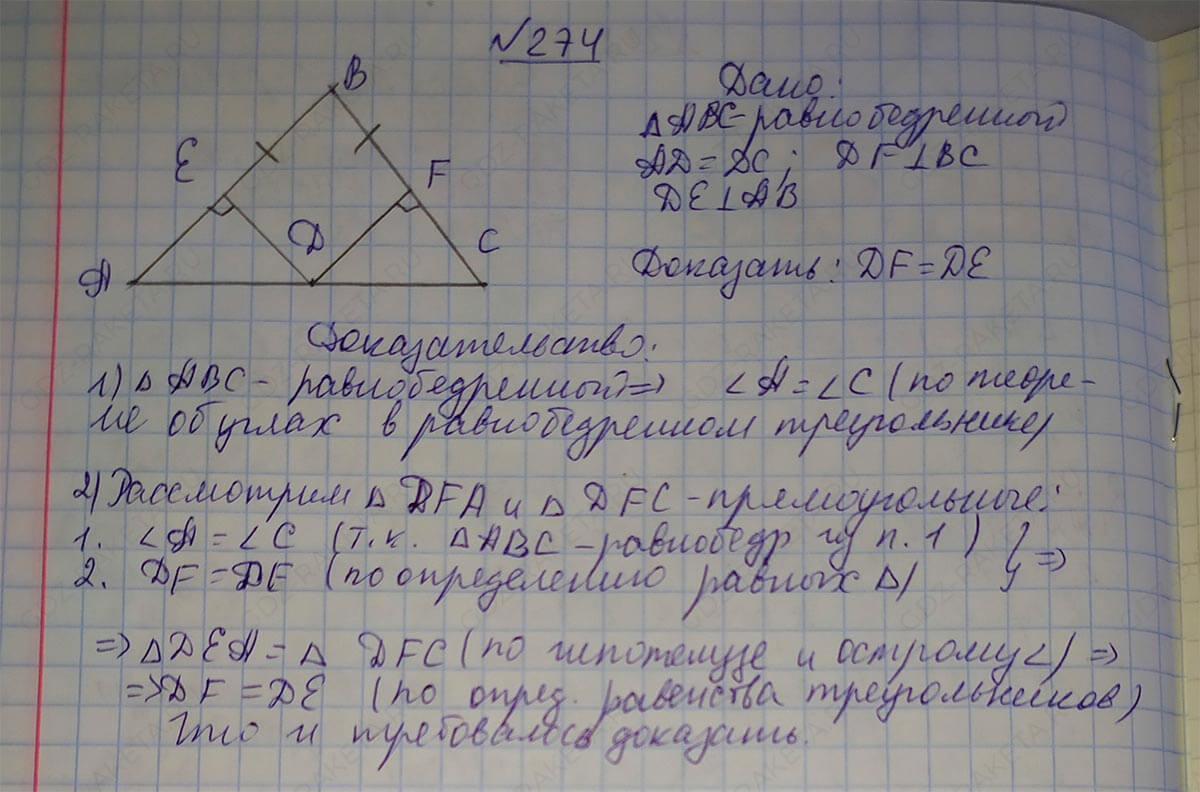 №274
B
E
F
D
C
A
Дано:
△ABC-равнобедренный
AD=DC; DF⊥BC
DE⊥AB
Доказать: DF=DE
Доказательство:
1) △ABC- равнобедренный=> ∠A=∠C (по теоре-
ме об углах в равнобедренном треугольнике)
2) Рассмотрим △DFA и △DFC-прямоугольные:
1. ∠A=∠C (т.к. △ABC-равнобедр из п.1) }
2. DF=DE (по определению равных △) } =>
=> △DEA=△ DFC (по гипотенузе и острому∠) =>
=>DF=DE (по опред. равенства треугольников)
Что и требовалось доказать.